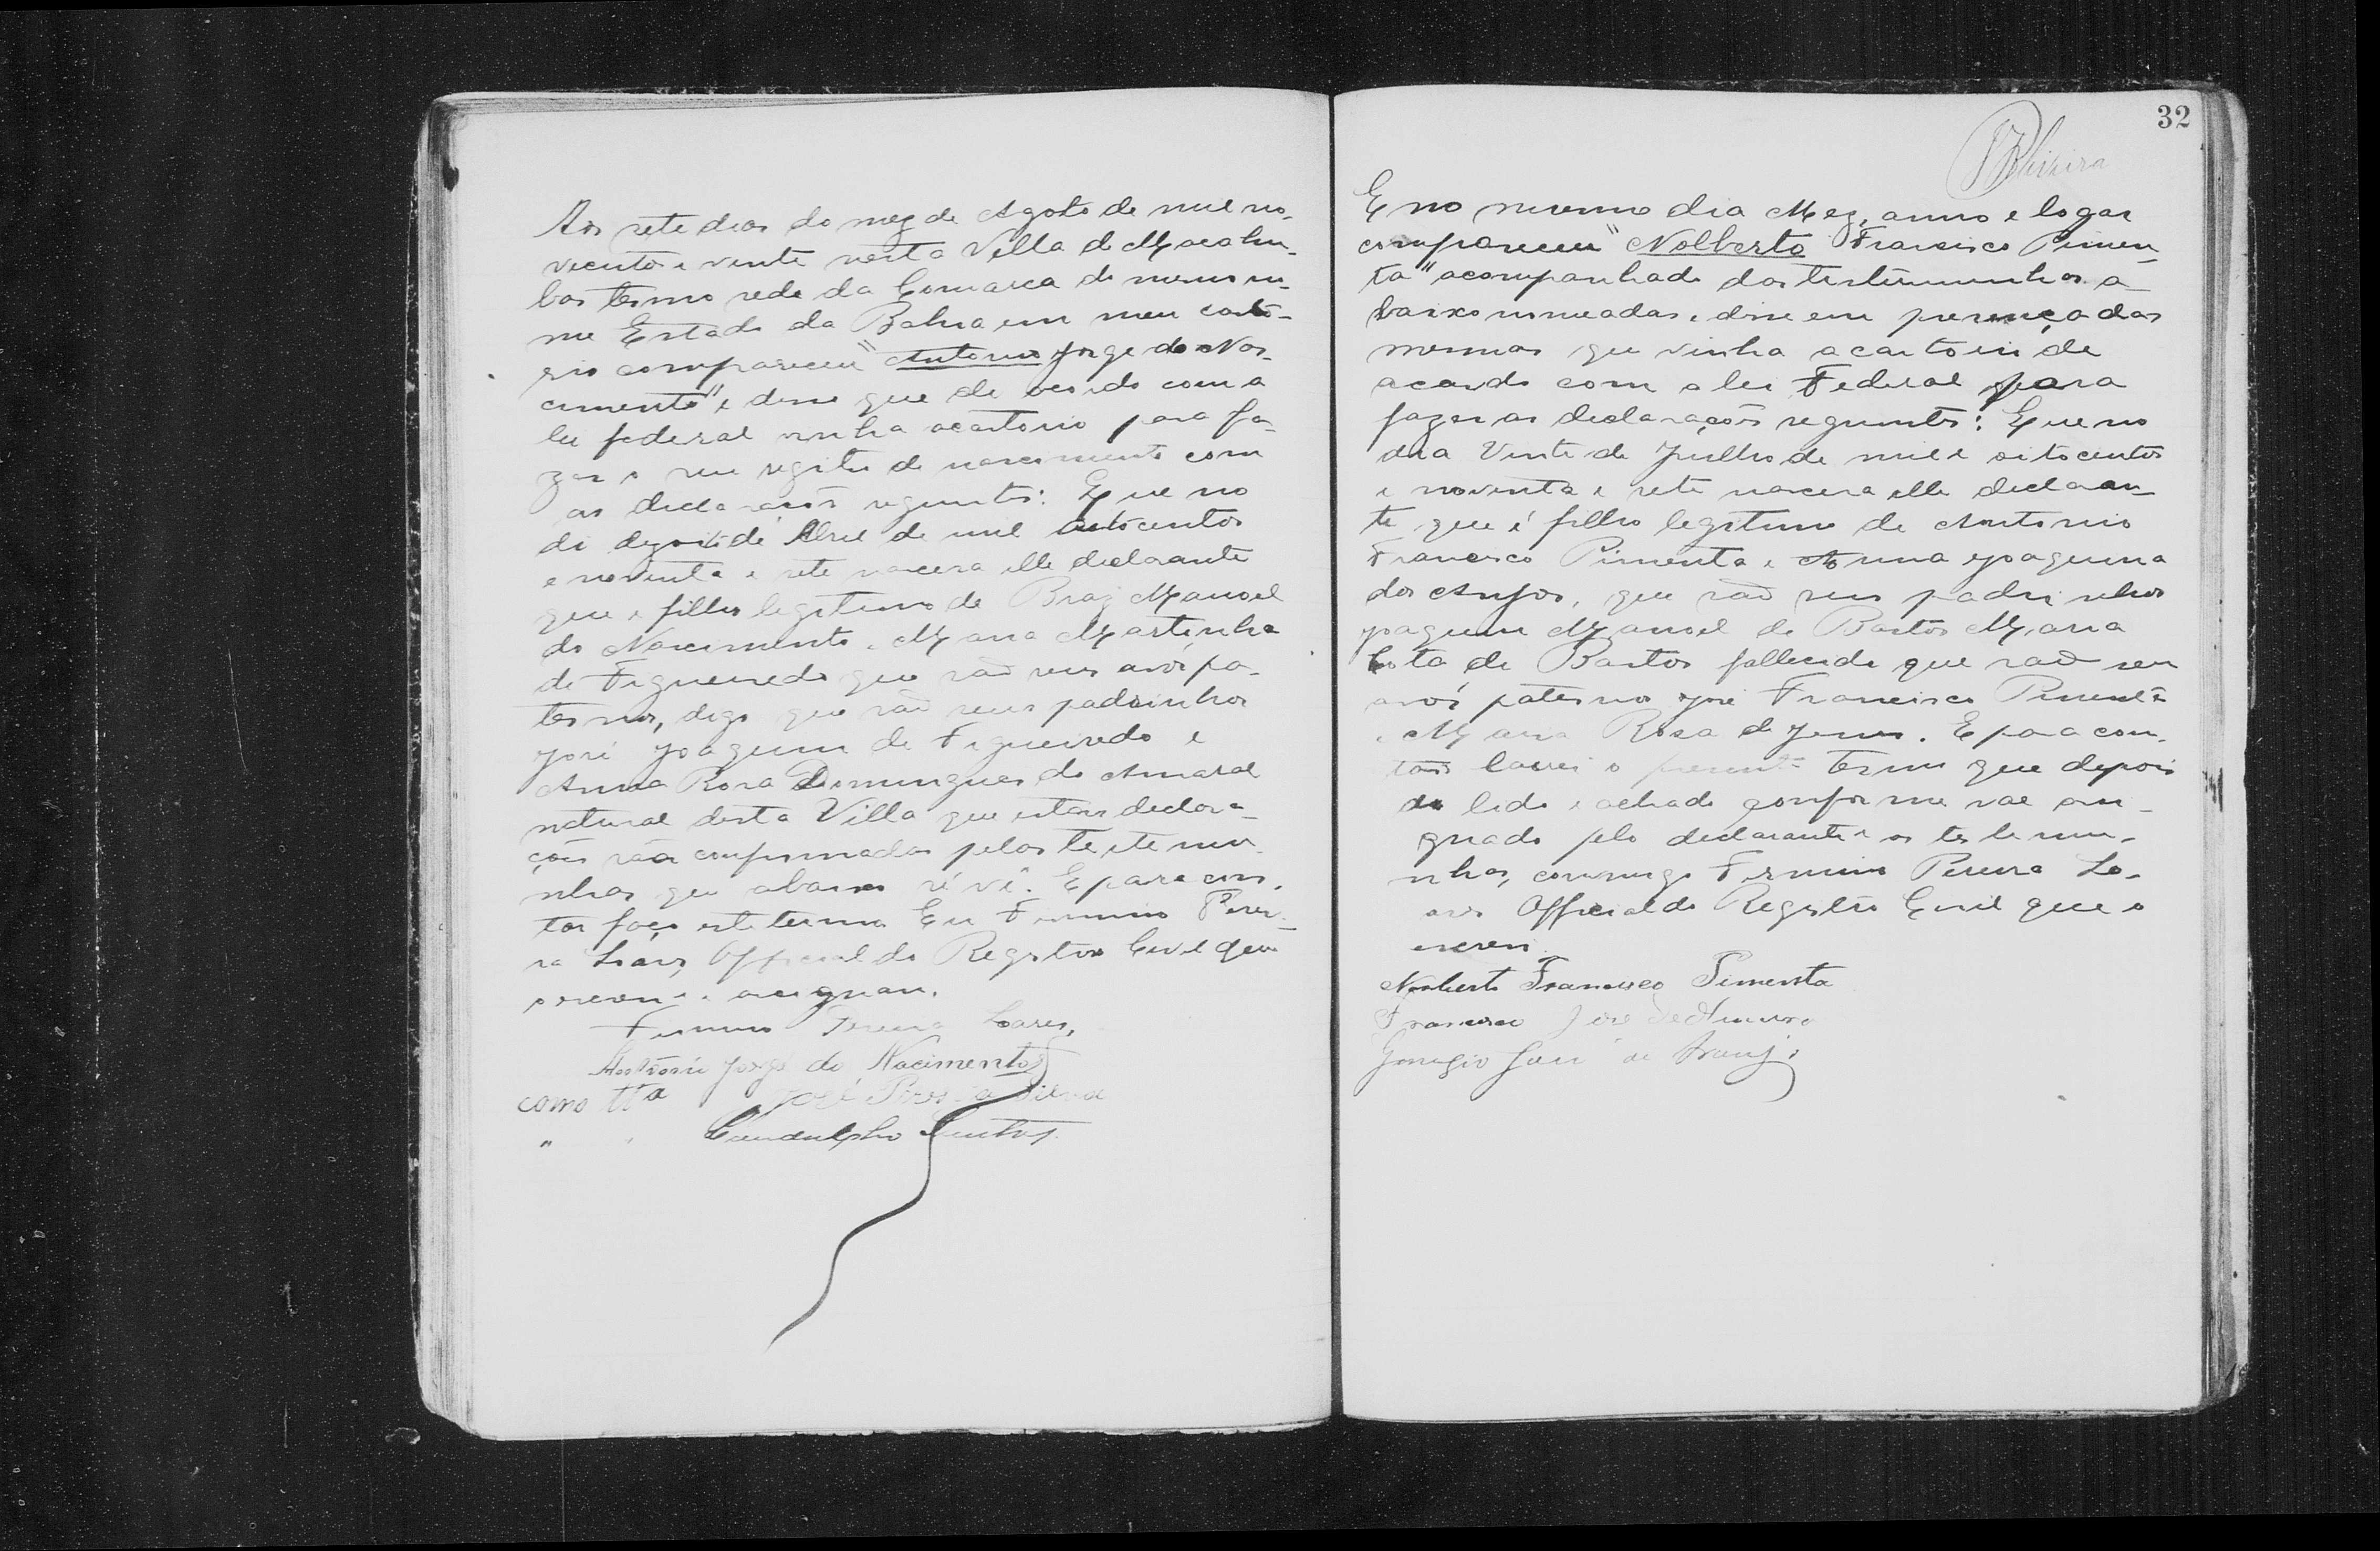 Aos sete dias do mez de Agosto de mil no-
vecentos e vinte nesta Villa de Macahu-
bas termo sede da Comarca do mesmo no-
me Estado da Bahia em meu carto-
rio compareceu "Antonio Jorge do Nas-
cimento" e disse que de acordo com a
lei federal vinha a cartorio para fa-
zer o seu registro de nascimento com
as declarações seguintes: Que no
dia dezoito de Abril de mil oitocentos
e noventa e sete nascera elle declarante
que e filho legitimo de Braz Manoel
do Nascimento e Maria Martinha
de Figueiredo que são seus avós pa-
ternos, digo que são seus padrinhos
José Joaquim de Figueiredo e
Anna Rosa Domingues do Amaral
natural desta Villa que estas declara-
ções são confirmadas pelas testemu-
nhas que abaixo se vê. E para cons-
tar faço este termo Eu Firmino Perei-
ra Soares Official do Registro Civil que
o escrevi e assignam.
Firmino Pereira Soares,
Antonio Jorge do Nacimento
como tta José Pires da Silva
" " Candulpho Santos
32
E no mesmo dia Mez, anno e logar
compareceu "Nolberto Francisco Pimen-
ta" acompanhado das testemunhas a-
baixo nomeadas, e disse em presença das
mesmas que vinha a cartorio de
acordo com a lei Federal para
fazer as declarações seguintes: Que no
dia Vinte de Julho de mil e oitocentos
e noventa e sete nascera elle declaran-
te que é filho legitimo de Antonio
Francisco Pimenta e Anna Joaquina
dos Anjos, que são seus padrinhos
Joaquim Manoel de Bastos Maria
de Bastos fallecida que são seu
avós paternos José Francisco Pimenta
e Maria Rosa de Jesus. E para cons-
tar lavrei o presente termo que depois
de lido e achado conforme vae assi-
gnado pelo declarante e as testemu-
nhas, commigo Firmino Pereira So-
ares Official do Registro Civil que o
escrevi.
Norberto Francisco Pimenta
Francisco José de
José de Araujo